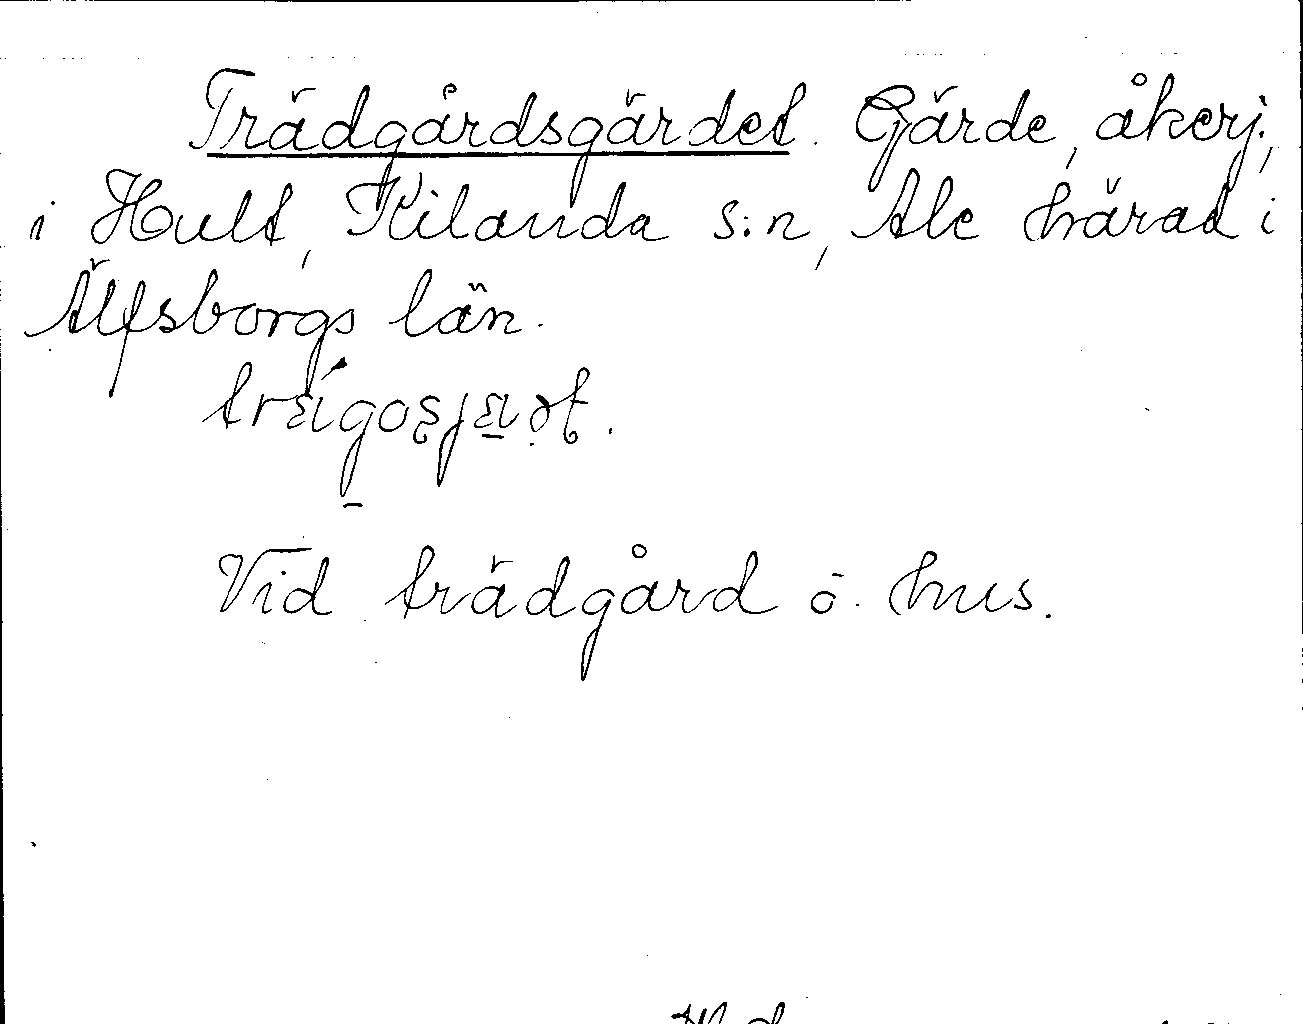 Trädgårdsgärdet. Gärde, åkerj.,
i Hult, Kilanda s:n, Ale härad i
Älfsborgs län.
Vid trädgård o. hus.